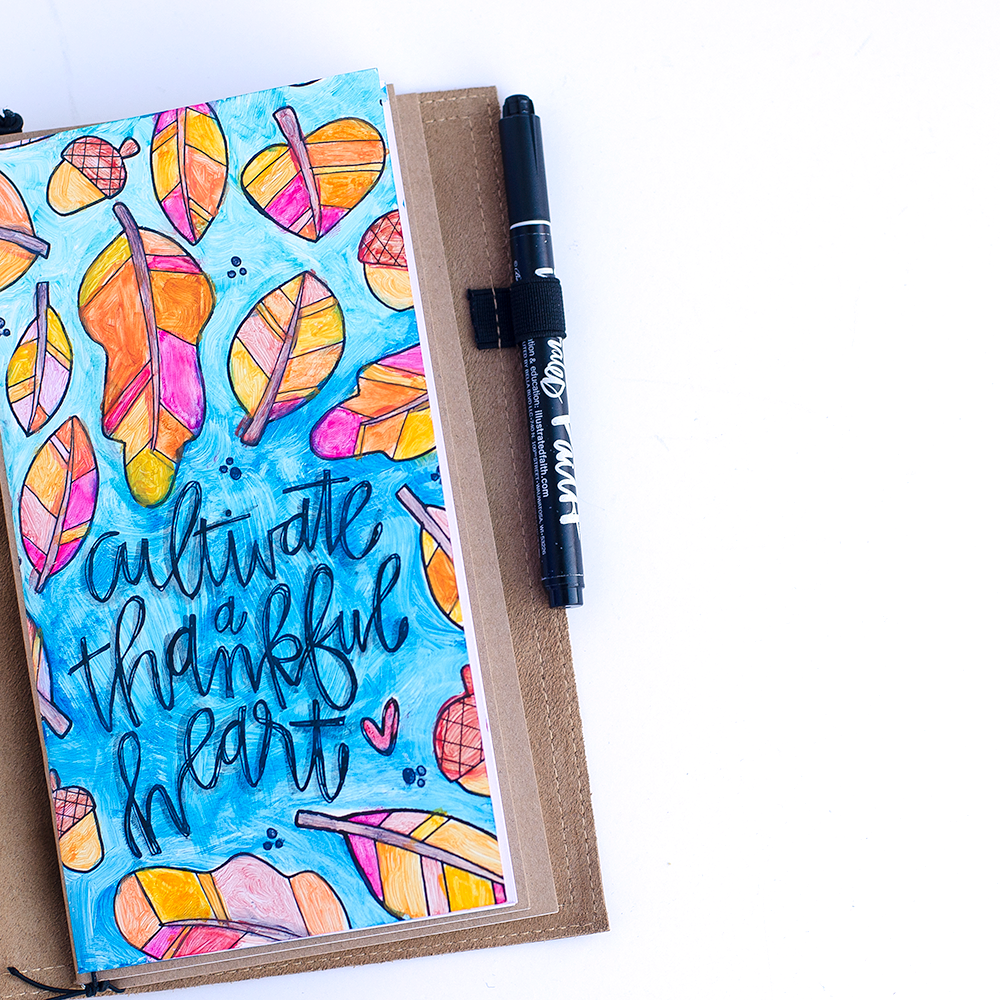 cultivate
a
thankful
heart
Faith
& education: illustratedfaith.com